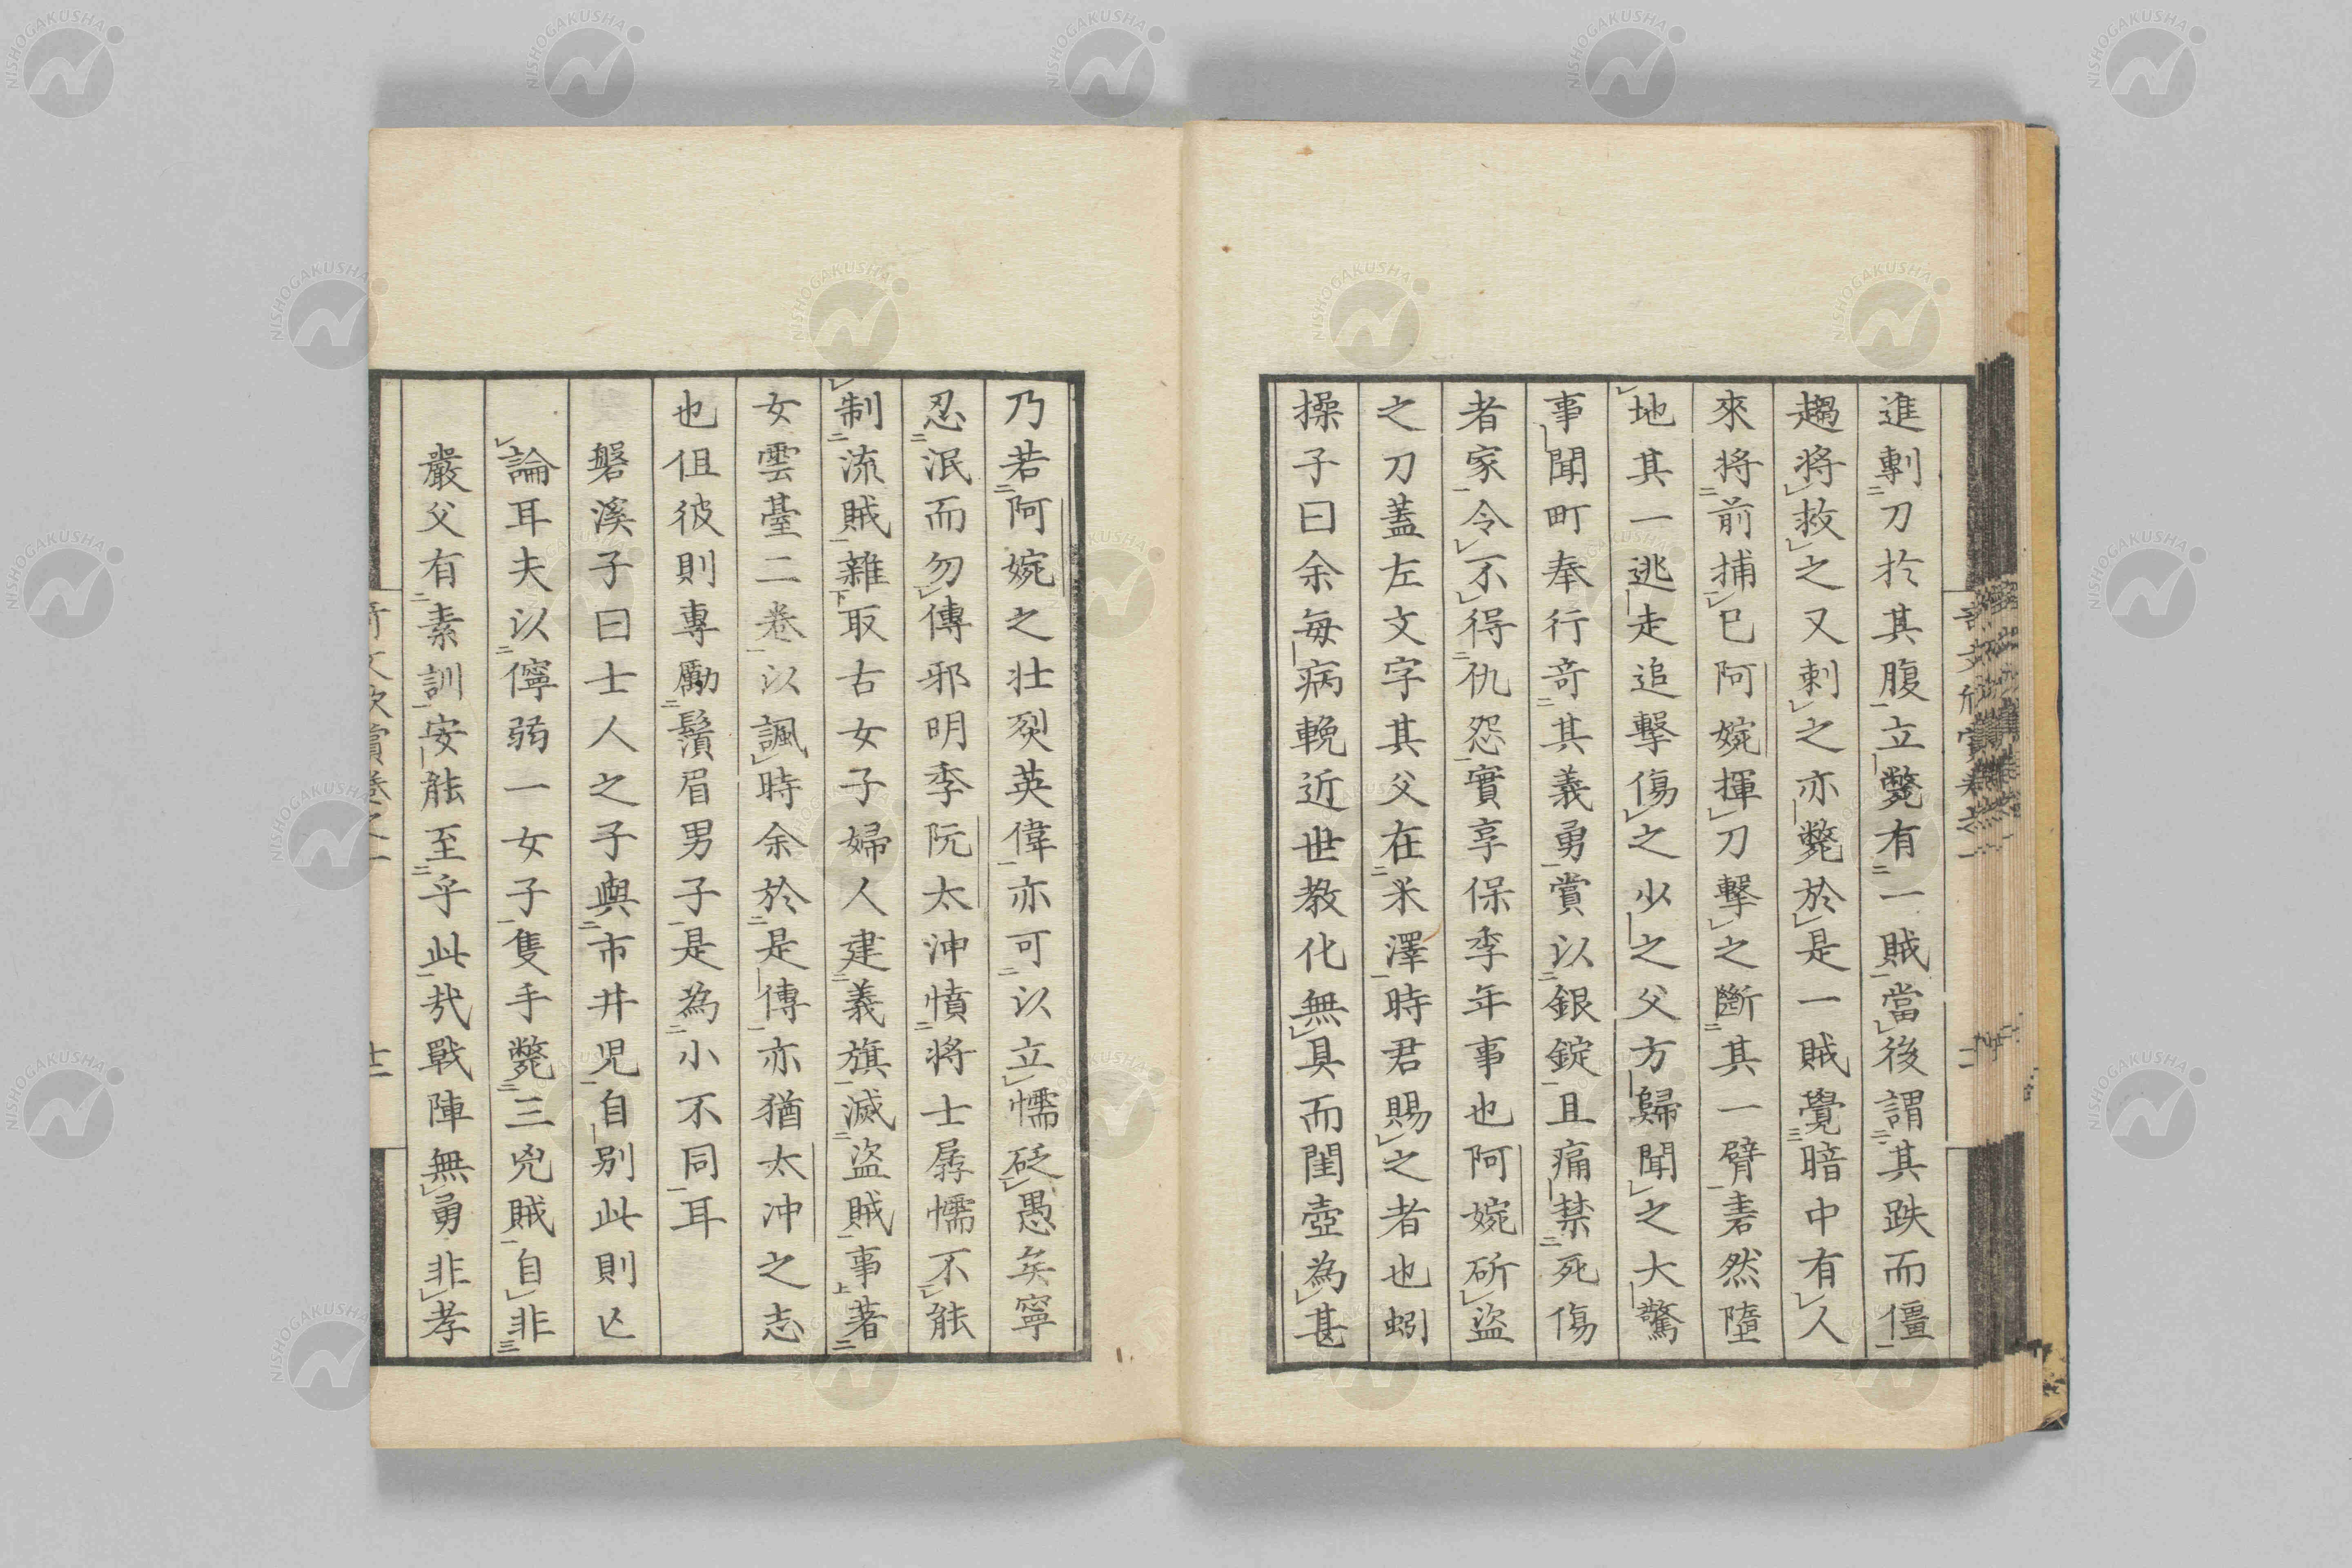 進剸刀扵其腹立斃有一賊當後謂其跌而僵
趨將救之又刺之亦斃於是一賊覺暗中有人
來將前捕已阿婉揮刀擊之斷其一臂砉然墮
地其一逃走追擊傷之少之父方歸聞之大驚
事聞町奉行竒其義勇賞以銀錠且痛禁死傷
者家令不得仇怨實享保季年事也阿婉斫盜
之刀蓋左文字其父在米澤時君賜之者也蚓
操子曰余每病輓近世教化無具而閨壼為甚
乃若阿婉之壮烈英偉亦可以立懦砭愚矣寧
忍泯而勿傳邪明季阮太沖憤将士孱懦不能
制流賊雜取古女子婦人建義旗滅盜賊事著
女雲臺二卷以諷時余於是傳亦猶太冲之志
也但彼則專勵鬚眉男子是為小不同耳
磐溪子曰士人之子與市井児自別此則亡
論耳夫以儜弱一女子隻手斃三兇賊自非
嚴父有素訓安能至乎此㢤戰陣無勇非孝
NISHOGAKUSHA